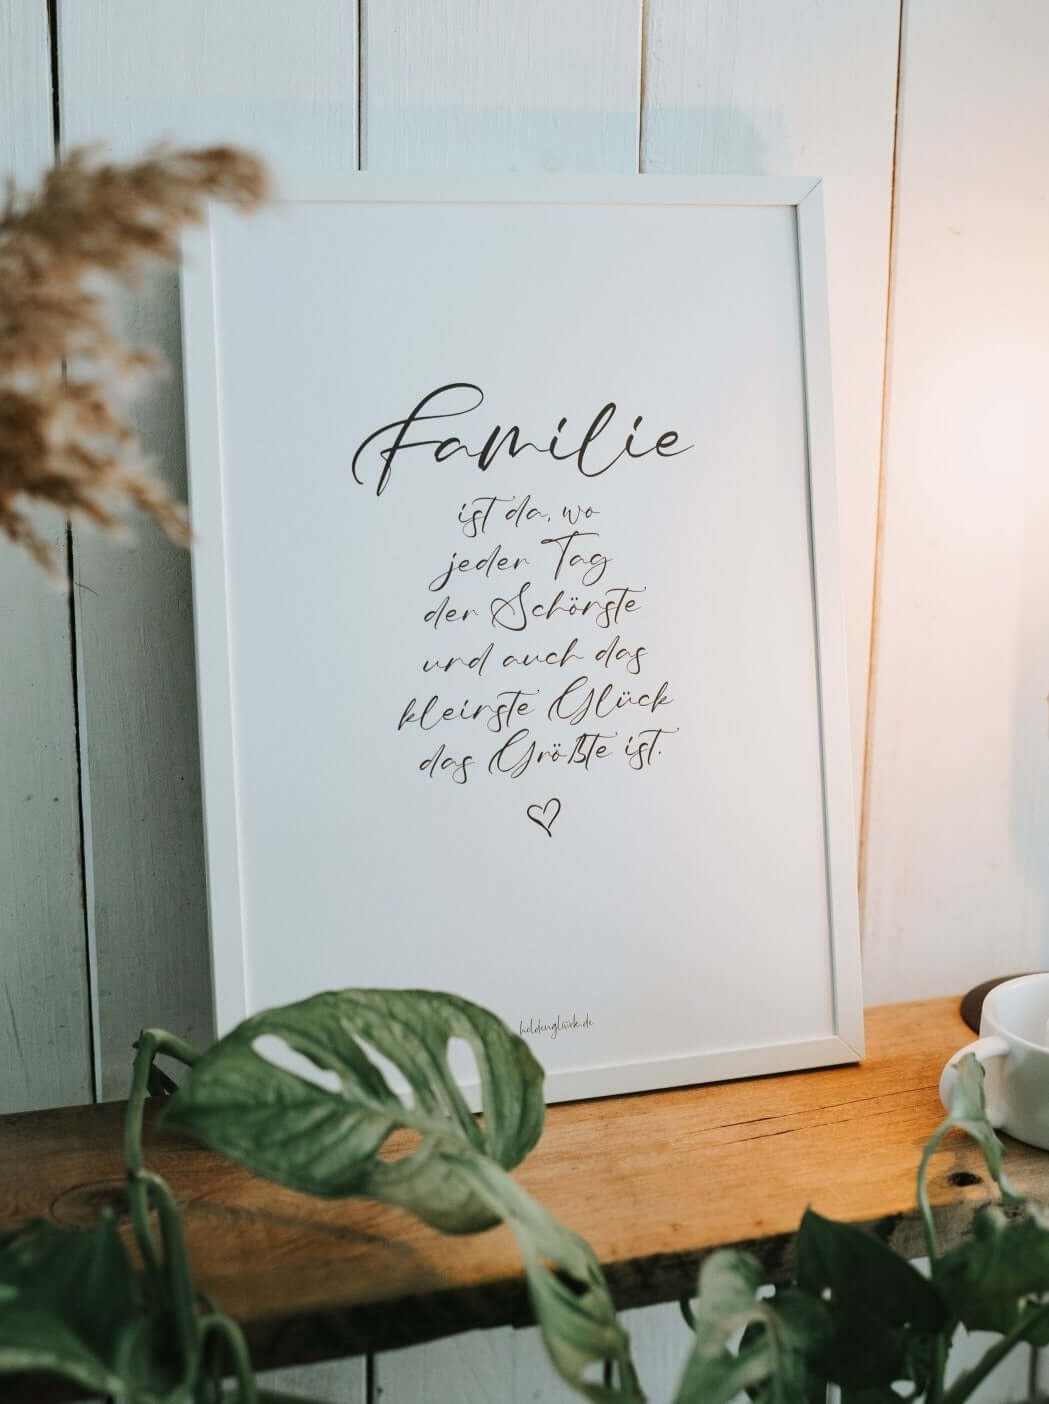 Familie
ist da, wo
jeder Tag
der Schönste
und auch das
kleinste Glück
das Größte ist.
heldenglück.de